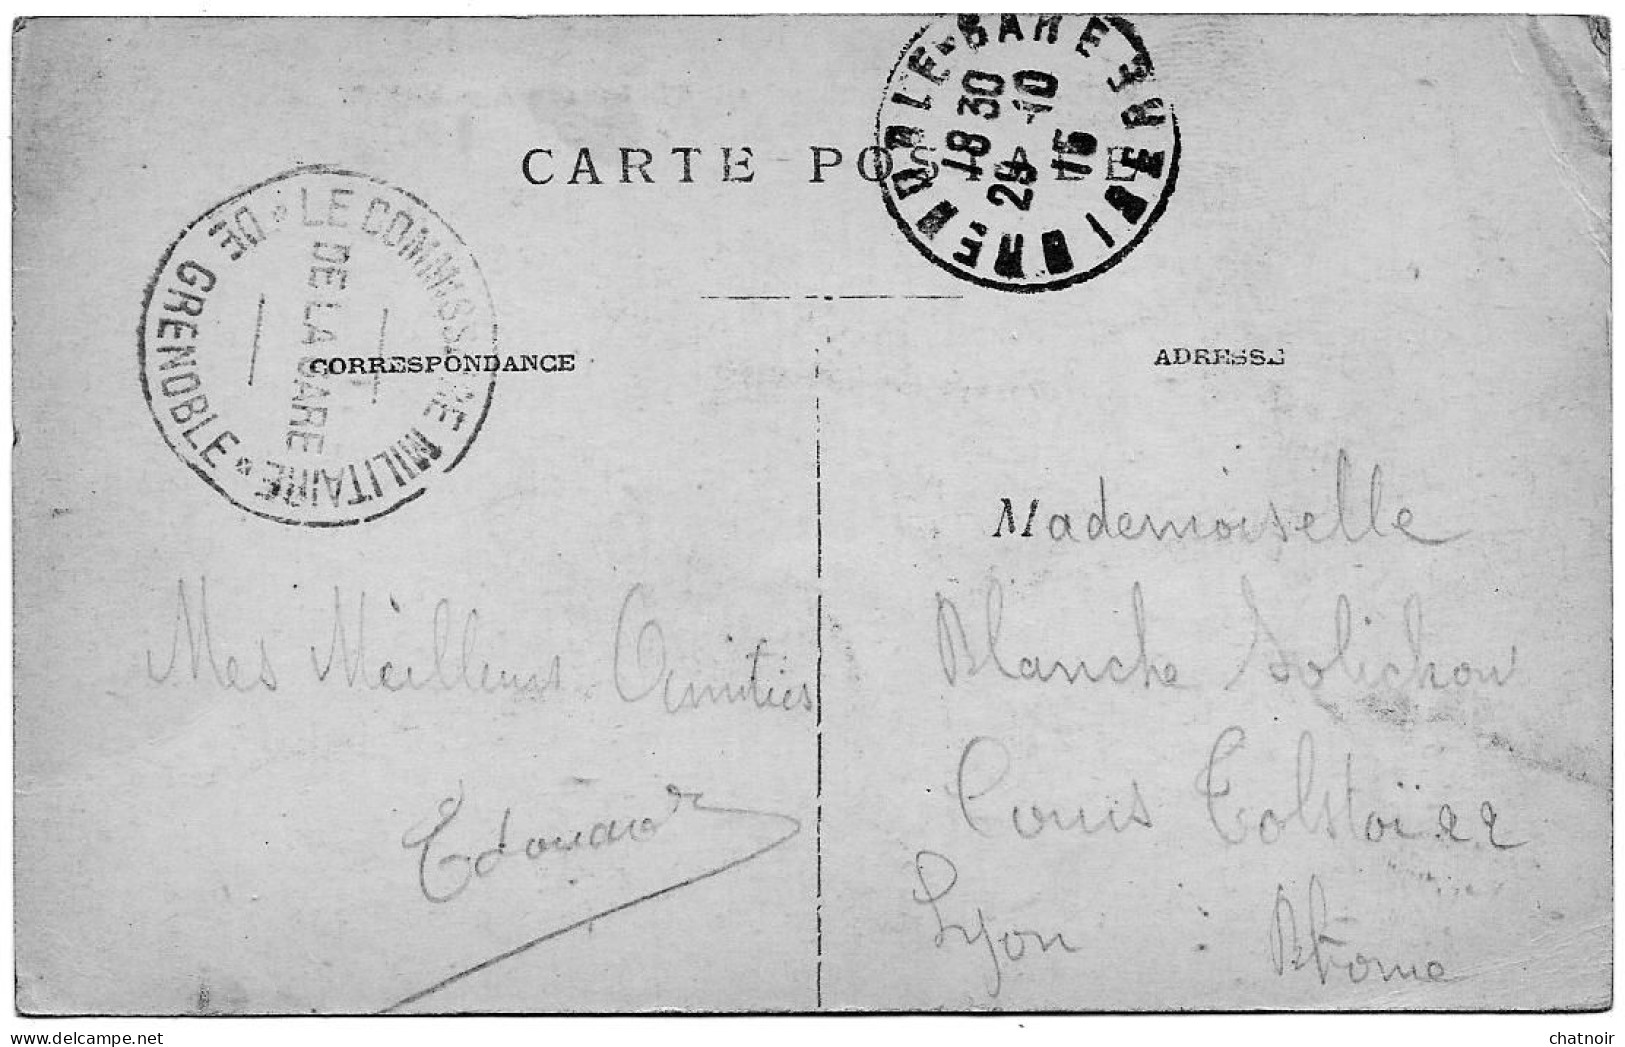 GRENOBLE-GARE
18 30
29 -10
15
ISERE
CARTE POSTALE
LE COMMISSAIRE MILITAIRE
DE LA GARE
DE GRENOBLE
CORRESPONDANCE
ADRESSE
Mademoiselle
Mes Meilleurs Amitiés
Blanche Solichon
Edouard
Cours Tolstoï 22
Lyon : Rhone
chatnoir